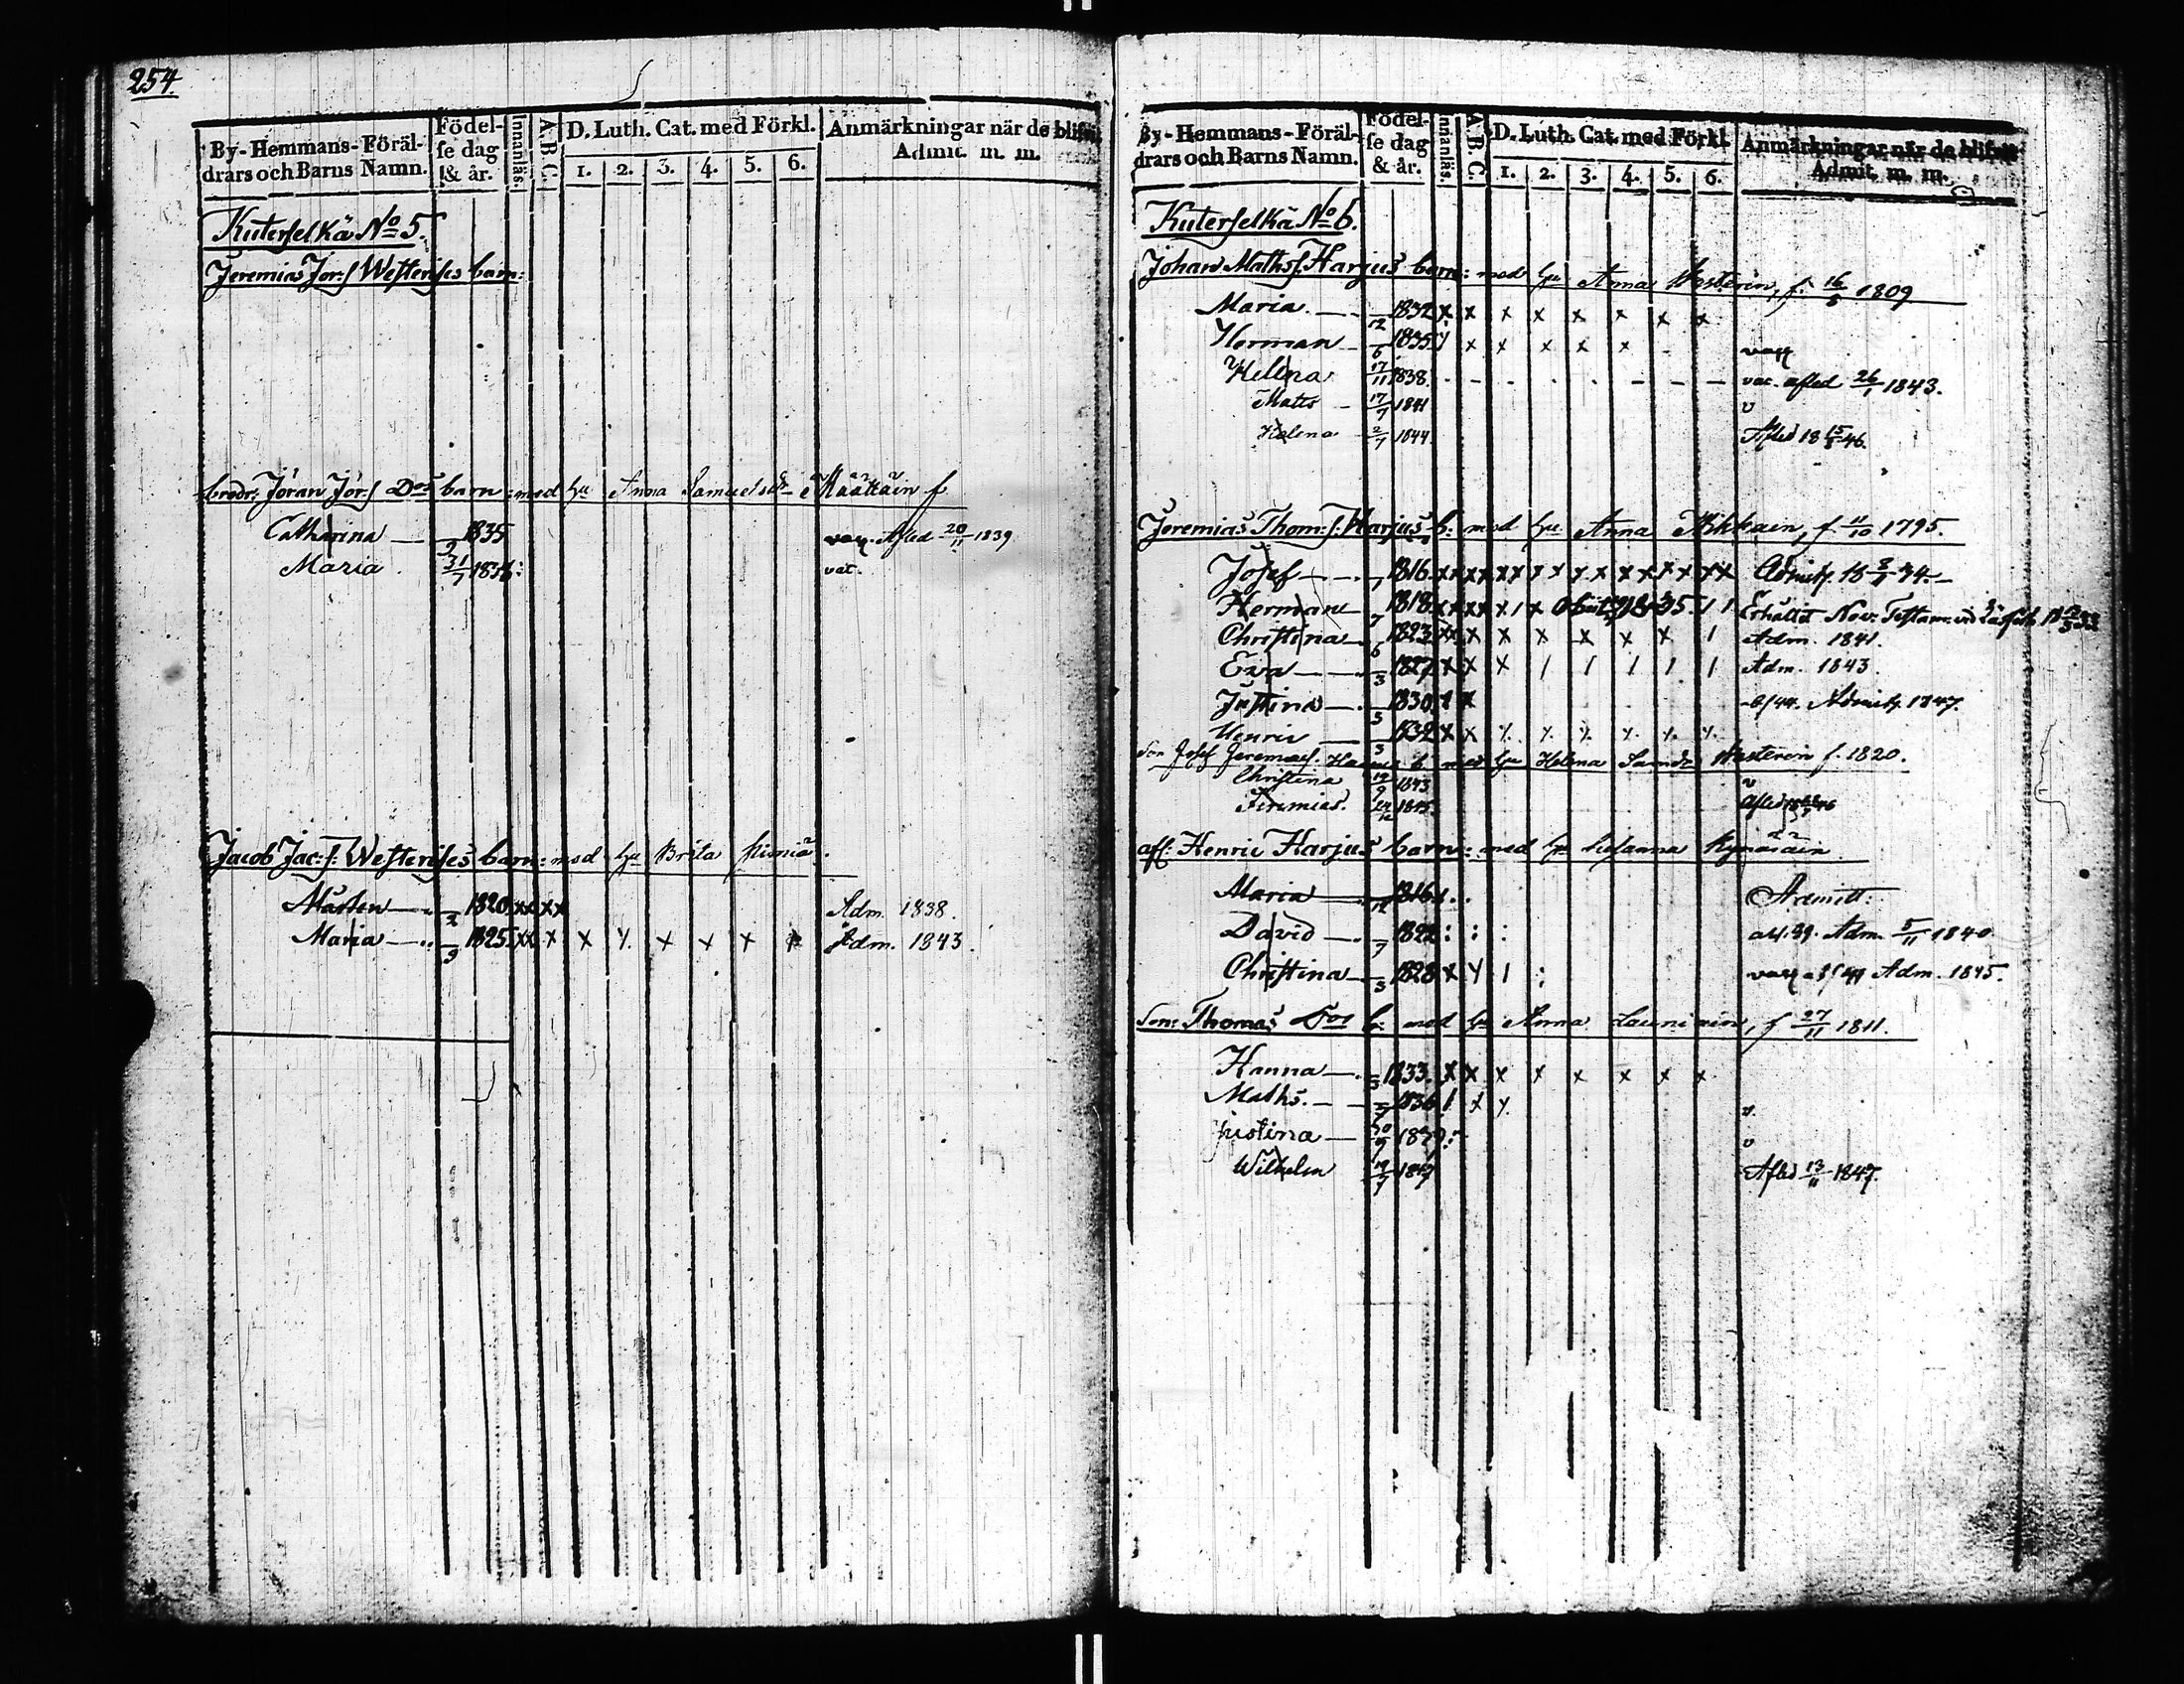 254.
By-Hemmans-Föräl-
drars och Barns Namn.
Födel-
se dag
& år.
Innanläs.
A B C
D. Luth. Cat. med Förkl.
1. 2. 3. 4. 5. 6.
Anmärkningar när de blifvit
Admit. m. m.
Kuterselkä No 5.
Jeremias Jör:s Westerises barn:
brodr: Jöran Jör:s Dos barn: med hu Anna Samuelsdr Määttäin f
Catharina — 9 1835 vacc. Afled 20/11 1839
Maria. 31/7 1838: vac.
Jacob Jac:s: Westerises barn: med hu Brita
Mårten — 2 1820. xx xx Adm. 1838.
Maria — 9 1825. xx x x x x x x x Adm. 1843.
By-Hemmans-Föräl-
drars och Barns Namn.
Födel-
se dag
& år.
Innanläs.
A B C
D. Luth. Cat. med Förkl.
1. 2. 3. 4. 5. 6.
Anmärkningar när de blifvit
Admit. m. m.
Kuterselkä No 6.
Johan Maths: Harjus barn: med hu Anna Westerin, f. 16/5 1809
Maria. — 12 1832 x x x x x x x x
Herman — 6 1835 x x x x x - vacc
Helena 17/11 1838. - - - - - - - - vac. afled 26/1 1843.
Matts — 17/7 1841 v
Helena 2/7 1844. Afled 18 15/5 46.
Jeremias Thom: s. Harjus b: med hu Anna Kikkain, f. 11/10 1795.
Josef — 1 1816. xx xx xx xx xx xx xx xx Admitt. 18 34.
Herman 7 1818. Erhållit Nov: Testam: vid
Christina — 6 1823. xx x x x x x x 1 Adm. 1841.
Eva — 3 1827. x x x 1 1 1 1 1 Adm. 1843.
Justina — 5 1830. x Admitt. 1847.
Henric — 3 1832 x x x x x x x x
Son Josef Jeremias s. Harjus b. med hu Helena Samdr Westerin f. 1820.
Christina 12/9 1843 v
Jeremias. 1845.
afl: Henric Harjus barn: med hu Susanna Kynäräin
Maria — 12 1816. Admitt:
David — 7 1822: : : Adm. 5/11 1840.
Christina — 5 1828 x x 1 : vacc Adm. 1845.
Son: Thomas Dos b: med hu Anna Launiain, f 27/11 1811.
Hanna — 5 1833. x x x x x x x x
Maths. — 7 1836. 1 x x v.
Justina — 30/9 1839. v
Wilhelm 19/7 1847 Afled 13/11 1847.